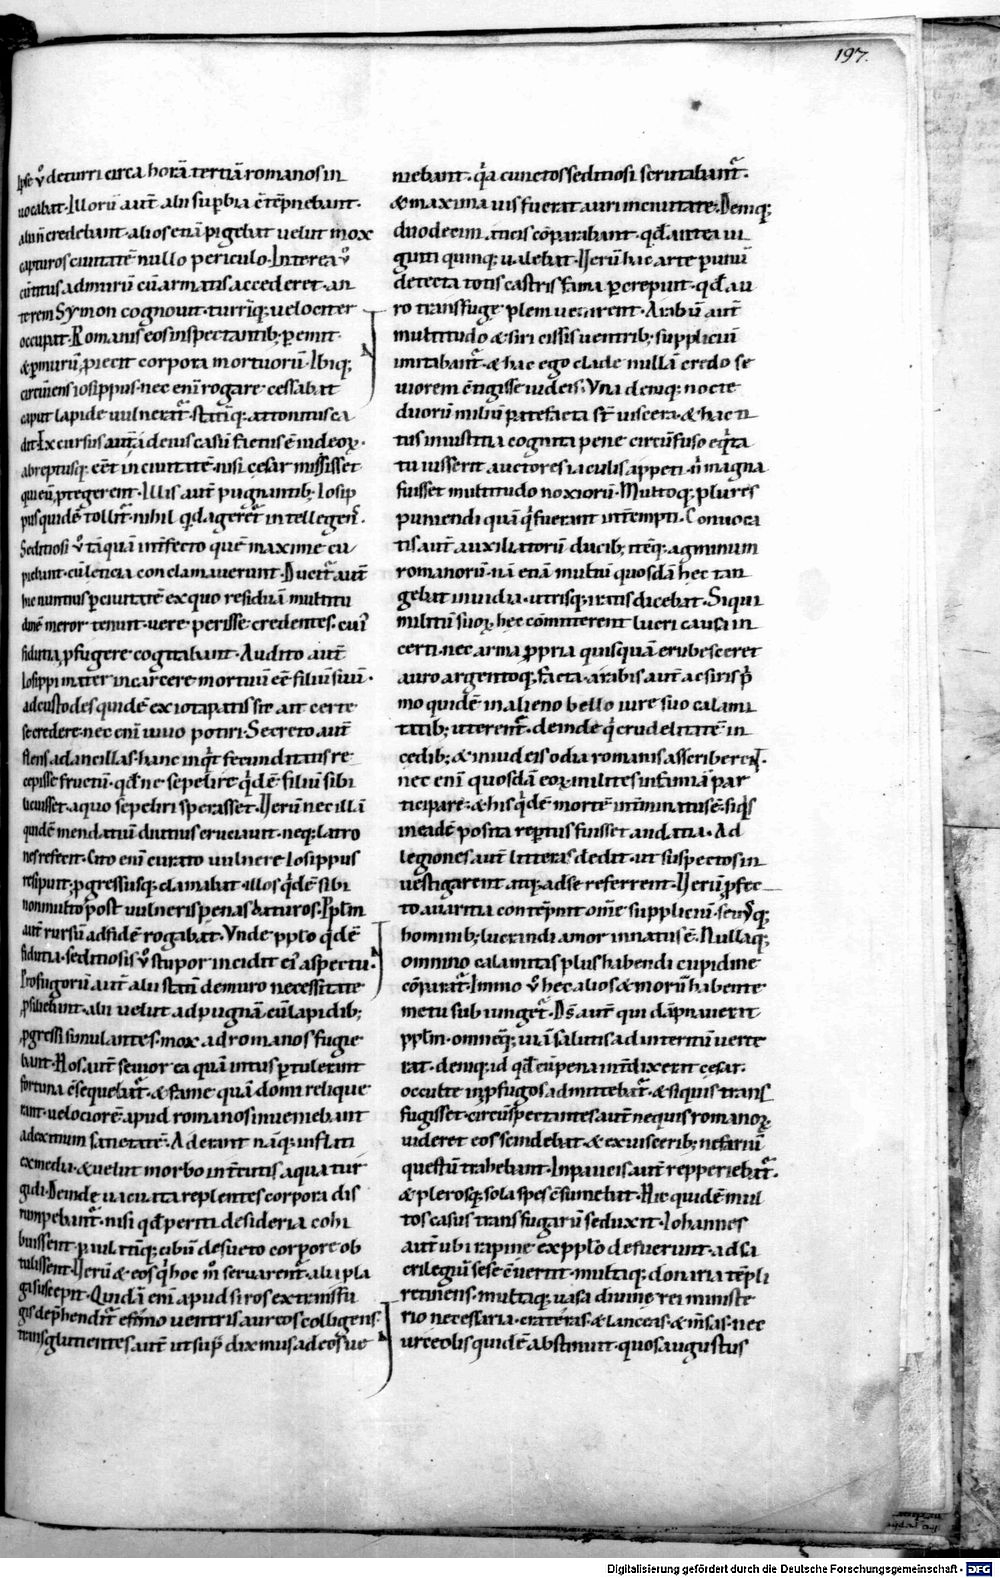 197.
Ipse v̊ deturri circa horā tertiā romanos in
uocabat. Illorū aut̄ alii suꝑbia c̄tēpnebant.
alii n̄ credebant. alios etiā pigebat uelut mox
capturos ciuitatē nullo periculo. Interea v̊
cū titus ad murū cū armatis accederet. an
terem Symon cognouit. turriq; uelociter
occupat. Romanis eos inspectantib; ꝑemit.
& ꝑ murū ꝓiecit corpora mortuorū. Ibiq;
circūiens iosippus. nec eni rogare cessabat
caput lapide uulneratͬ. statīq; attonitus ca
dit. Excursus autē ad eius casū factus ē iudeoꝝ.
abreptusq; eēt in ciuitatē. nisi cesar misisset
qui eū ꝓtegerent. Illis aut̄ pugnantib; Iosip
pus quidē tollitͬ. nihil qd̄ ageretͬ intellegens.
Seditiosi v̊ tāquā int̄fecto quē maxime cu
piebant. cū leticia conclamauerunt. Ducitͬ aut̄
hic nuntius ꝑ ciuitatē ex quo residuā multitu
dinē meror tenuit. uere perisse credentes. cui'
fiducia ꝓfugere cogitabant. Audito aut̄
Iosippi mater in carcere mortuū eē filiū suū.
ad custodes quidē ex iotapatis sit ait certe
se credere. nec eni uiuo potiri. Secreto aut̄
flens ad ancillas. hanc inqt fecunditatis re
cepisse fructū. qd̄ ne sepelire qdē filiū sibi
licuisset. a quo sepeliri sperasset. Uerū nec illā
quidē mendatiū diutius cruciauit. neq; latro
nes refecit. Cito eni curato uulnere Iosippus
resipuit. ꝓgressusq; clamabat. illos qdē sibi
non multo post uulneris penas daturos. Pplm
aut̄ rursū ad fidē rogabat. Vnde pplo qdē
fiducia. seditiosis v̊ stupor incidit ei' aspectu.
Profugorū aut̄ alii statī de muro necessitate
ꝓsiliebant. alii uelut ad pugnā cū lapidib;
ꝓgressi simulantes. mox ad romanos fugie
bant. Hos aut̄ seuior ea quā intus ꝑtulerunt
fortuna c̄sequebatͬ. & fame quā domi relique
runt. uelociorē apud romanos inueniebant
ad exitium satietatē. Aderant nāq; inflati
ex media. & uelut morbo int̄cutis aqua tur
gidi. Deinde uacuata replentes corpora dis
rumpebantͬ. nisi qd̄ periti desideria cohi
buissent. paulatīq; cibū desueto corpore ob
tulissent. Uerū & eos q hoc m̊ seruarentͬ. alia pla
ga suscepit. Quidā eni apud siros ex transfu
gis dep̄henditͬ e fimo uentris aureos colligens.
transglutientes aut̄ ut sup̄ diximus ad eos ue
niebant. qa cunctos seditiosi scrutabantͬ.
& maxima uis fuerat auri in ciuitate. Deniq;
duodecim atticis cōparabant. qd̄ antea ui
ginti quinq; ualebat. Uerū hac arte ꝑ unū
detecta totis castris fama ꝑcrepuit. qd̄ au
ro transfuge plem uenirent. Arabū aut̄
multitudo & siri cissis uentrib; suppliciū
imitabantͬ. & hac ego clade nullā credo se
uiorem c̄tigisse iudeis. Vna deniq; nocte
duorū miliū patefacta st̄ uiscera. & hac ti
tus iniustitia cognita pene circūfuso eqta
tu iusserit auctores iaculis appeti. n̄ magna
fuisset multitudo noxiorū. Multoq; plures
puniendi quā q fuerant int̄empti. Conuoca
tis aut̄ auxiliatorū ducib; itēq; agminum
romanorū. nā etiā multū quosdā hec tan
gebat inuidia. utrisq; iratis dicebat. Si qui
militū suoꝝ hec cōmitterent lucri causa in
certi. nec arma ꝓpria quisquā erubesceret
auro argentoq; facta. arabis aut̄ ac siris p̄
mo quidē in alieno bello iure suo calami
tatib; uterentͬ. deinde q crudelitatē in
cedib; & in iudeis odia romanis asscriberent.
nec eni quosdā eoꝝ milites infamiā par
ticipare. & his qdē mortē inminatus ē. si qs
in eadē posita reꝑtus fuisset audatia. Ad
legiones aut̄ litteras dedit. ut suspectos in
uestigarent atq; ad se referrent. Uerū ꝓfec
to auaritia contēpnit om̄e suppliciū. seuūq;
hominib; lucrandi amor innatus ē. Nullaq;
omnino calamitas plus habendi cupidine
cōparatͬ. Immo v̊ hec alios & morū habente
metu subiungetͬ. Ds̄ aut̄ qui dāpnauerit
pplm. omnēq; uiā salutis ad interitū uerte
rat. deniq; id qd̄ cū pena int̄dixerit cesar.
occulte in ꝓfugos admittebatͬ. & si quis trans
fugisset. circūspectantes aut̄ ne quis romanoꝝ
uideret eos scindebat. & ex uiscerib; nefariū
questū trahebant. In paucis aut̄ repperiebatͬ.
& plerosq; sola spes c̄sumebat. Hic quidē mul
tos casus transfugarū seduxit. Iohannes
aut̄ ubi rapine ex pplo defuerunt. ad sa
crilegiū sese c̄uertit. multaq; donaria tēpli
retinens. multaq; uasa diuine rei ministe
rio necessaria. crateras. & lanceas. & m̄sas. nec
urceolis quidē abstinuit. quos augustus
Digitalisierung gefördert durch die Deutsche Forschungsgemeinschaft - DFG